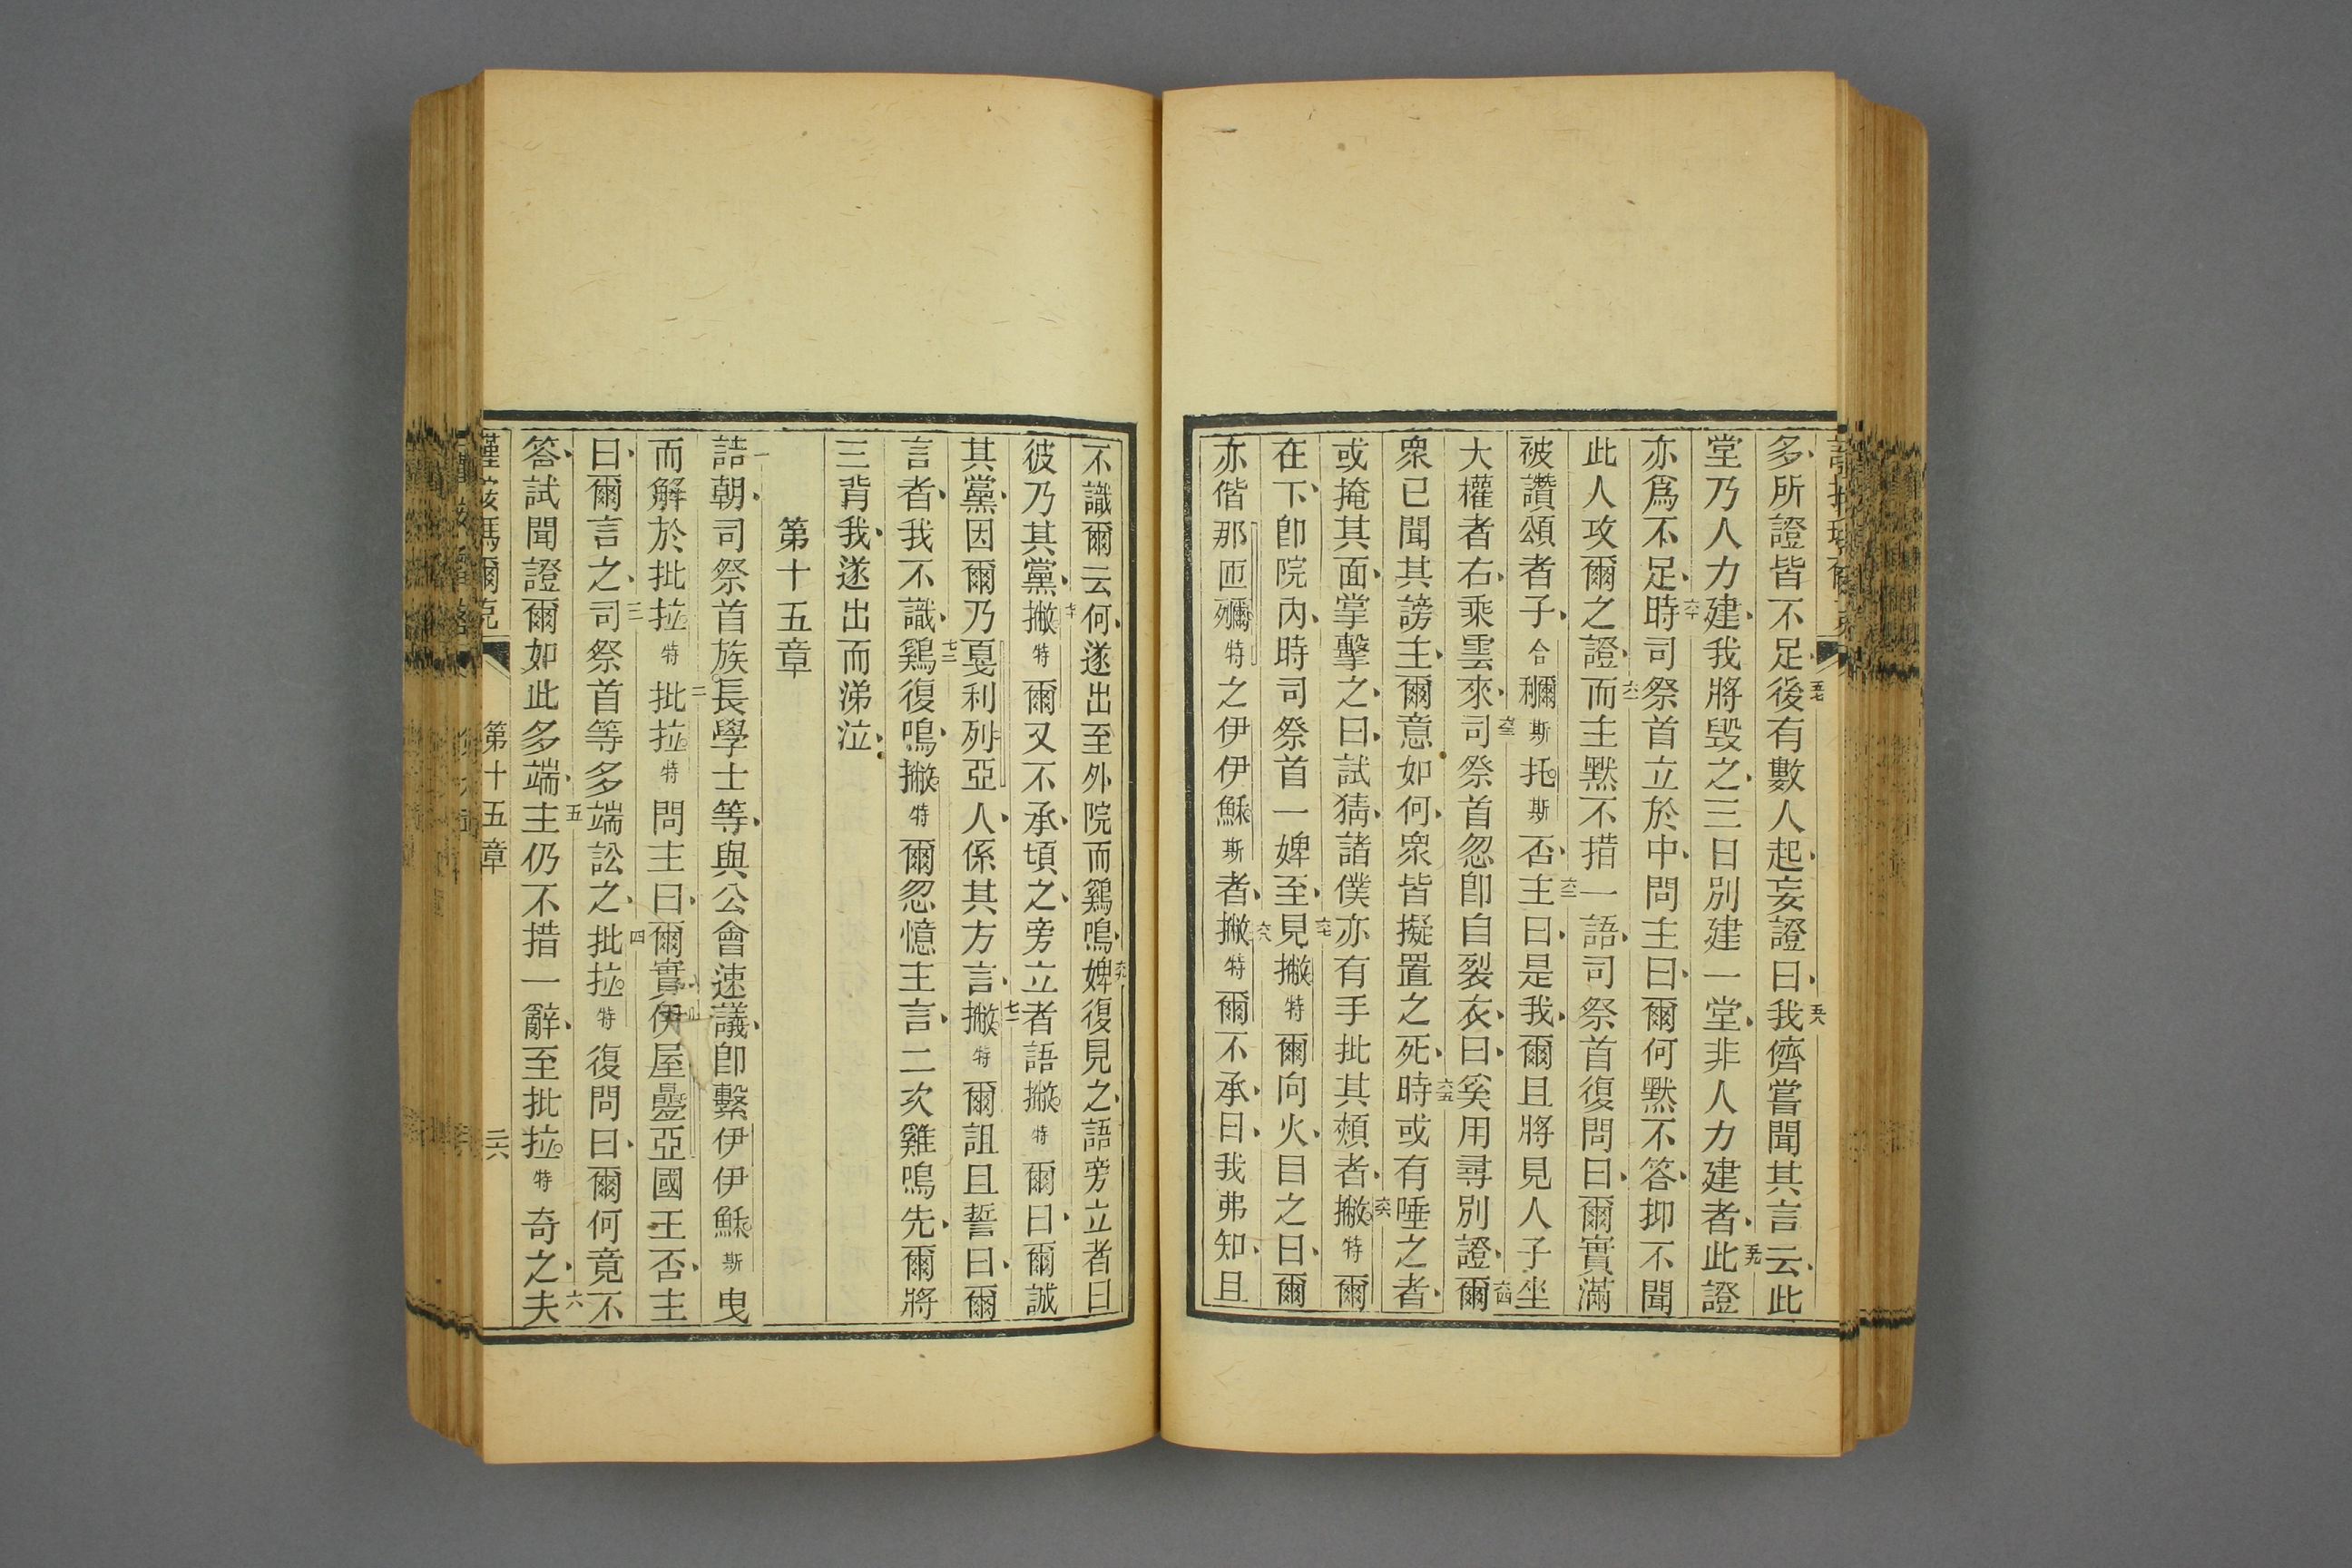 多所證皆不足五七後有數人起妄證曰五八我儕嘗聞其言云此
堂乃人力建我將毀之三日別建一堂非人力建者五九此證
亦爲不足六十時司祭首立於中問主曰爾何黙不答抑不聞
此人攻爾之證六一而主黙不措一語司祭首復問曰爾實滿
被讚頌者子合穪斯托斯否六二主曰是我爾且將見人子坐
大權者右乘雲來六三司祭首忽卽自裂衣曰奚用尋別證六四爾
衆已聞其謗主爾意如何衆皆擬置之死六五時或有唾之者
或掩其面掌擊之曰試猜諸僕亦有手批其頰者六六撇特爾
在下卽院內時司祭首一婢至六七見撇特爾向火目之曰爾
亦偕那匝列穪特之伊伊穌斯者六八撇特爾不承曰我弗知且
不識爾云何遂出至外院而鷄鳴六九婢復見之語旁立者曰
彼乃其黨七十撇特爾又不承頃之旁立者語撇特爾曰爾誠
其黨因爾乃戛利列亞人係其方言七一撇特爾詛且誓曰爾
言者我不識七二鷄復鳴撇特爾忽憶主言二次雞鳴先爾將
三背我遂出而涕泣
第十五章
一詰朝司祭首族長學士等與公會速議卽繫伊伊穌斯曳
而解於批拉特二批拉特問主曰爾實伊屋疊亞國王否主
曰爾言之三司祭首等多端訟之四批拉特復問曰爾何竟不
答試聞證爾如此多端五主仍不措一辭至批拉特奇之六夫
第十五章
二六